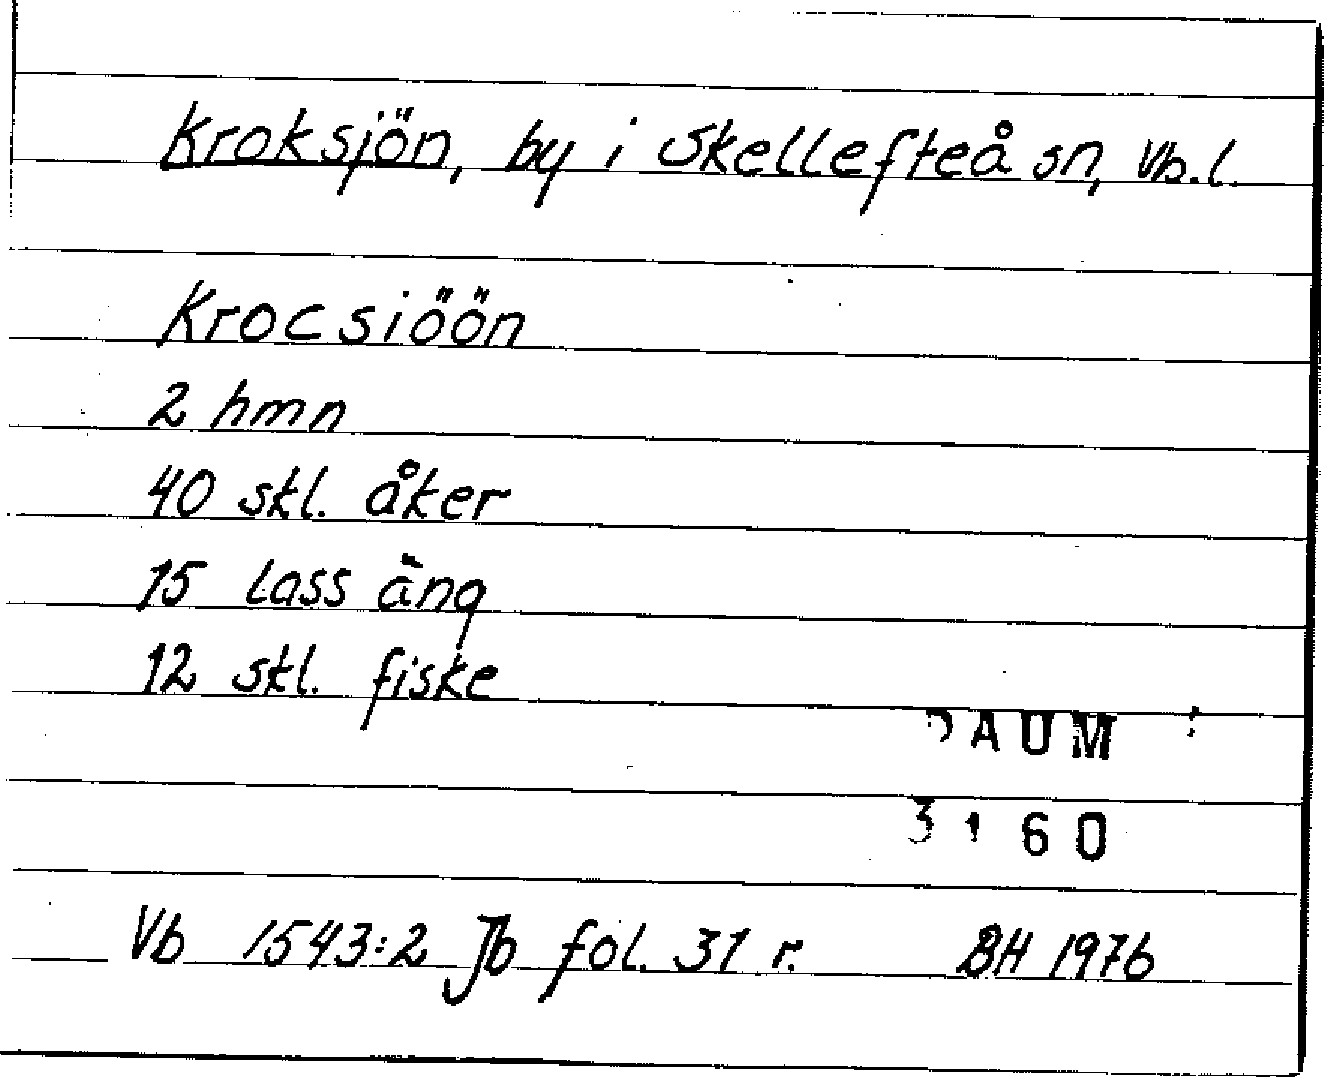 Kroksjön, by i Skellefteå sn, Vb.l.
Krocsiöön
2 hmn
40 skl. åker
15 lass äng
12 skl. fiske
DAUM
3160
Vb 1543:2 Jb fol. 31 r. BH 1976